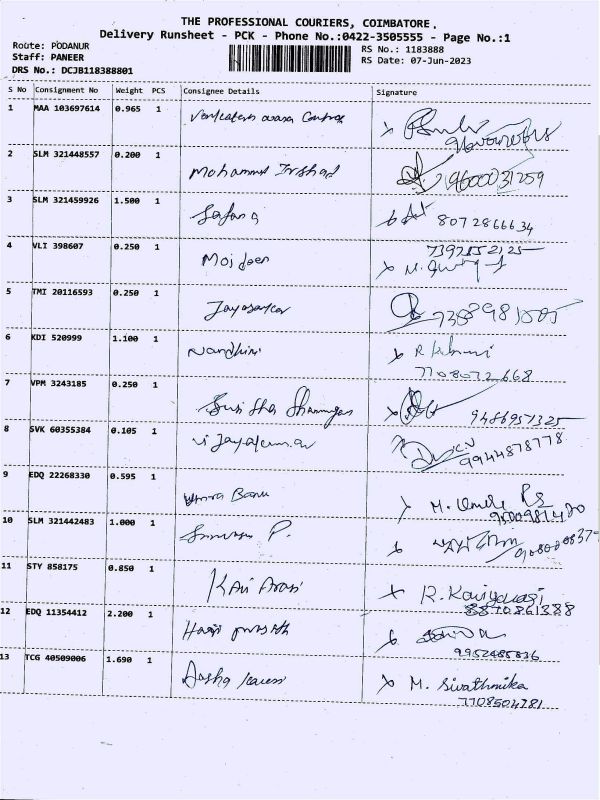 THE PROFESSIONAL COURIERS, COIMBATORE.
Delivery Runsheet - PCK - Phone No.:0422-3505555 - Page No.:1
Route: PODANUR
Staff: PANEER
DRS No.: DCJB118388801
RS No.: 1183888
RS Date: 07-Jun-2023
S No Consignment No Weight PCS Consignee Details Signature
1 MAA 103697614 0.965 1
2 SLM 321448557 0.200 1 Mohammed Irshad
9600031259
3 SLM 321459926 1.500 1 Safana
8072866634
4 VLI 398607 0.250 1 Moideen
7397552125
5 TMI 20116593 0.250 1 Jayasankar
6 KDI 520999 1.100 1 Nandhini
7708072668
7 VPM 3243185 0.250 1 Shanmugam
9486957325
8 SVK 60355384 0.105 1 Vijayakumar
9944878778
9 EDQ 22268330 0.595 1 Banu
M.
10 SLM 321442483 1.000 1 P.
11 STY 858175 0.850 1 Kavi Arasi
R. Kaviyarasi
8870861888
12 EDQ 11354412 2.200 1 Hari
9952485836
13 TCG 40509006 1.690 1
M. Sivathmika
7708504781